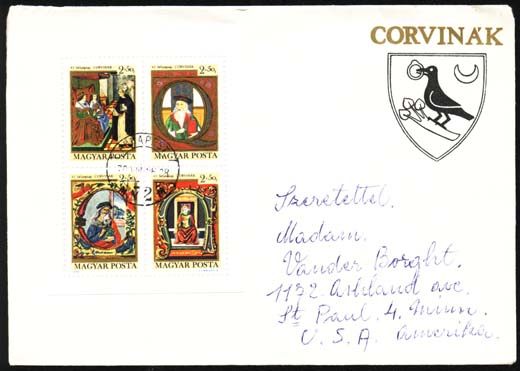 CORVINÁK
2+50f
2+50f
MAGYAR POSTA
MAGYAR POSTA
2+50f
2+50f
MAGYAR POSTA
MAGYAR POSTA
Szeretettel.
Madám.
Vánder Borght.
1172. Ashland ave.
St Paul. 4. Minn.
U. S. A. Amerika.